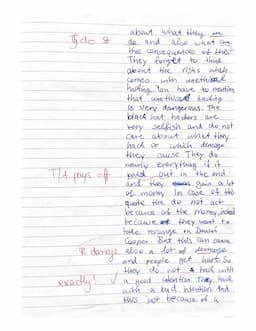 about what they are
Ty do St do and also what are
the consequences of this.
They forget to think
about the risks which
comes with unethical
hacking. You have to mention
that unethical hacking
is very dangerous. The
black hat hackers are
very selfish and do not
care about what they
hack or which damage
they cause They do
nearly everything if it
T/A pays off paid out in the end
and they gain a lot
of money. In case of the
quote the do not act
because of the money, indeed
because they want to
take revange on Daniel
Cooper. But this can cause
R damage also a lot of demage
and people get hurt. So
they do not hack with
exactly! ✓ a good intention. They hack
with a bad intention. And
this just because of a